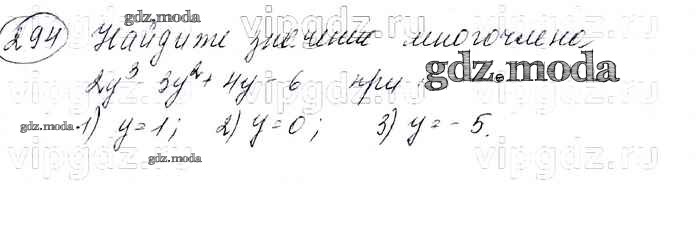 294 Найдите значение многочлена
2y³ - 3y² + 4y - 6 при
1) y = 1; 2) y = 0; 3) y = - 5.
gdz.moda
gdz.moda
gdz.moda
gdz.moda
vipgdz.ru vipgdz.ru vipgdz.ru
vipgdz.ru vipgdz.ru vipgdz.ru
vipgdz.ru vipgdz.ru vipgdz.ru